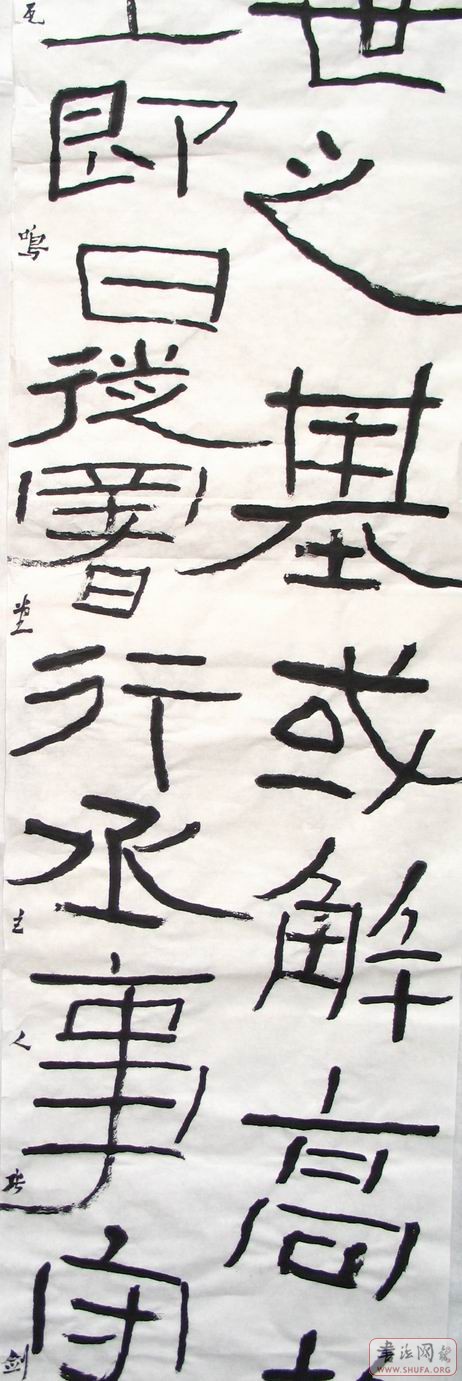 世之基或解高
即日徙署行丞事守
瓦鳴堂主人张剑
書法网
WWW.SHUFA.ORG